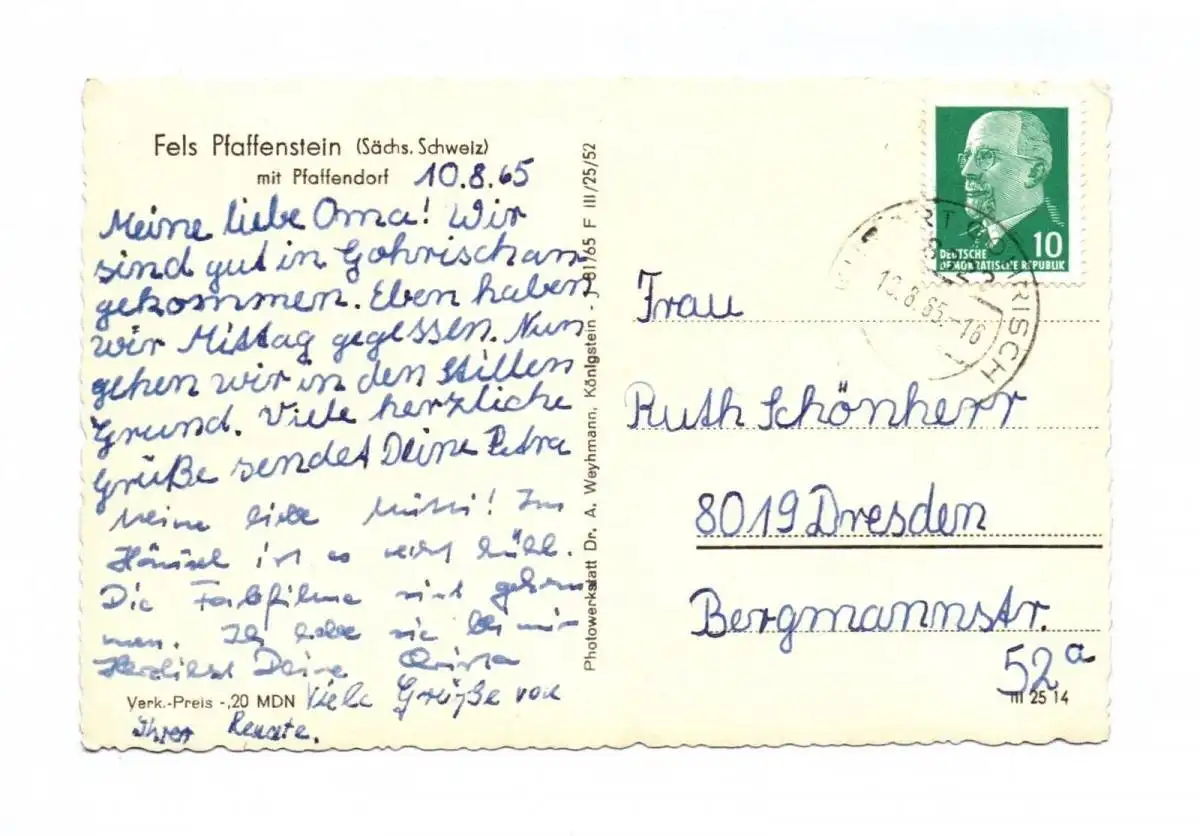 Fels Pfaffenstein (Sächs. Schweiz)
mit Pfaffendorf 10.8.65
Meine liebe Oma! Wir
sind gut in Gohrisch an-
gekommen. Eben haben
wir Mittag gegessen. Nun
gehen wir in den stillen
Grund. Viele herzliche
Grüße sendet Deine Petra
Meine liebe Mutti! Im
Häusel ist es recht kühl.
Die Farbfilme sind gekom
men. Ich habe sie bei mir
Herzlichst Deine Christa
Verk.-Preis -,20 MDN Viele Grüße von
Ihrer Renate.
Photowerkstatt Dr. A. Weyhmann, Königstein - J 81/65 F III/25/52
DEUTSCHE 10
DEMOKRATISCHE REPUBLIK
KURORT GOHRISCH
10.8.65.-16
Frau
Ruth Schönherr
8019 Dresden
Bergmannstr.
52a
III 25 14